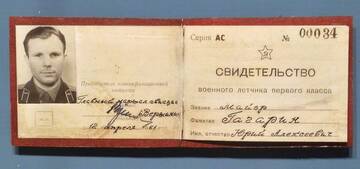 Председатель квалификационной
комиссии
Главный маршал авиации
Вершинин
12 апреля 1961
Серия АС № 00034
СВИДЕТЕЛЬСТВО
военного летчика первого класса
Звание майор
Фамилия Гагарин
Имя, отчество Юрий Алексеевич